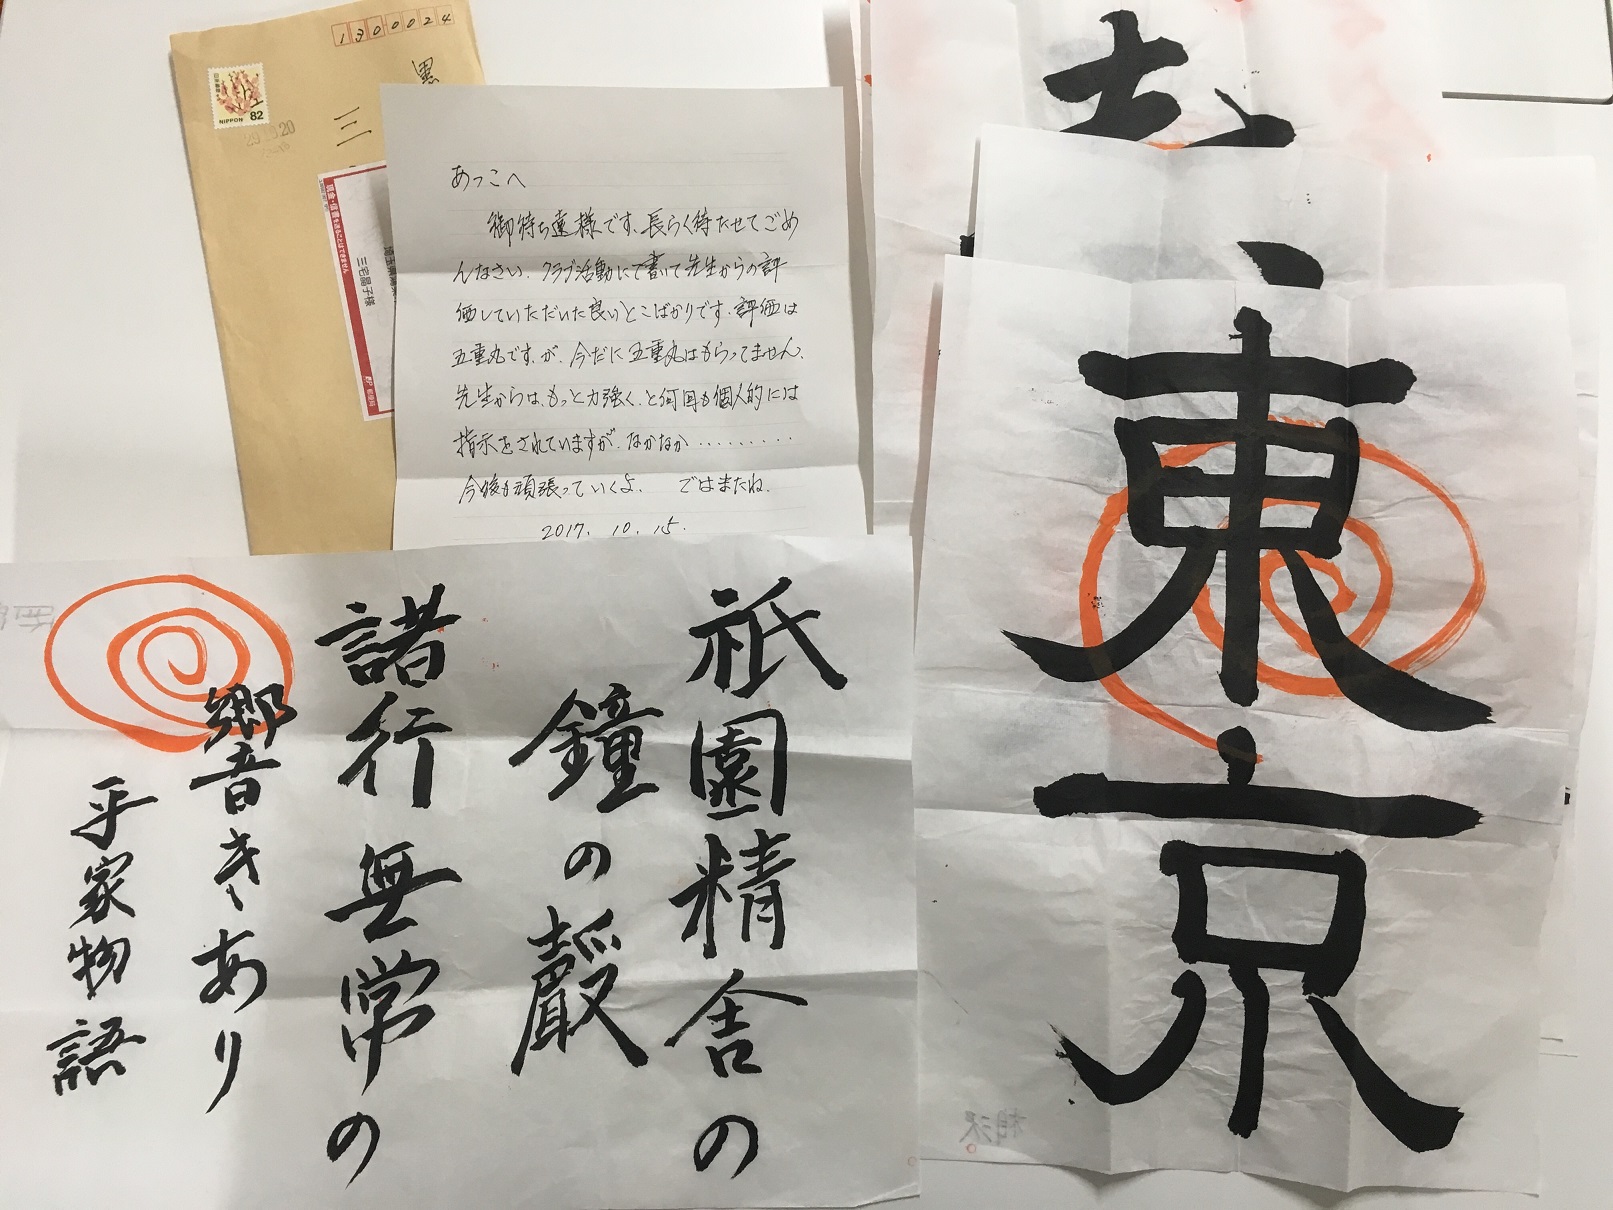 1300024
日本郵便
NIPPON 82
三
現金・貴重品を送ることはできません
三宅晶子様
あっこへ
御待ち遠様です、長らく待たせてごめ
んなさい、クラブ活動にて書いて先生からの評
価していただいた良いとこばかりです、評価は
五重丸です、が、今だに五重丸はもらってません、
先生からは、もっと力強く、と何回も個人的には
指示をされていますが、なかなか・・・・・・・・・
今後も頑張っていくよ、 ではまたね、
2017. 10. 15.
東京
祇園精舎の
鐘の聲
諸行無常の
響きあり
平家物語
相沢